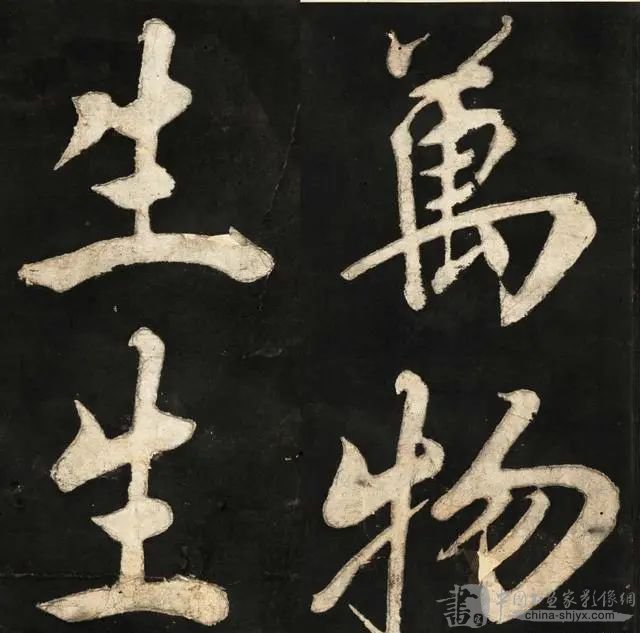 萬物
生生
書 中国书画家影像網
china-shjyx.com